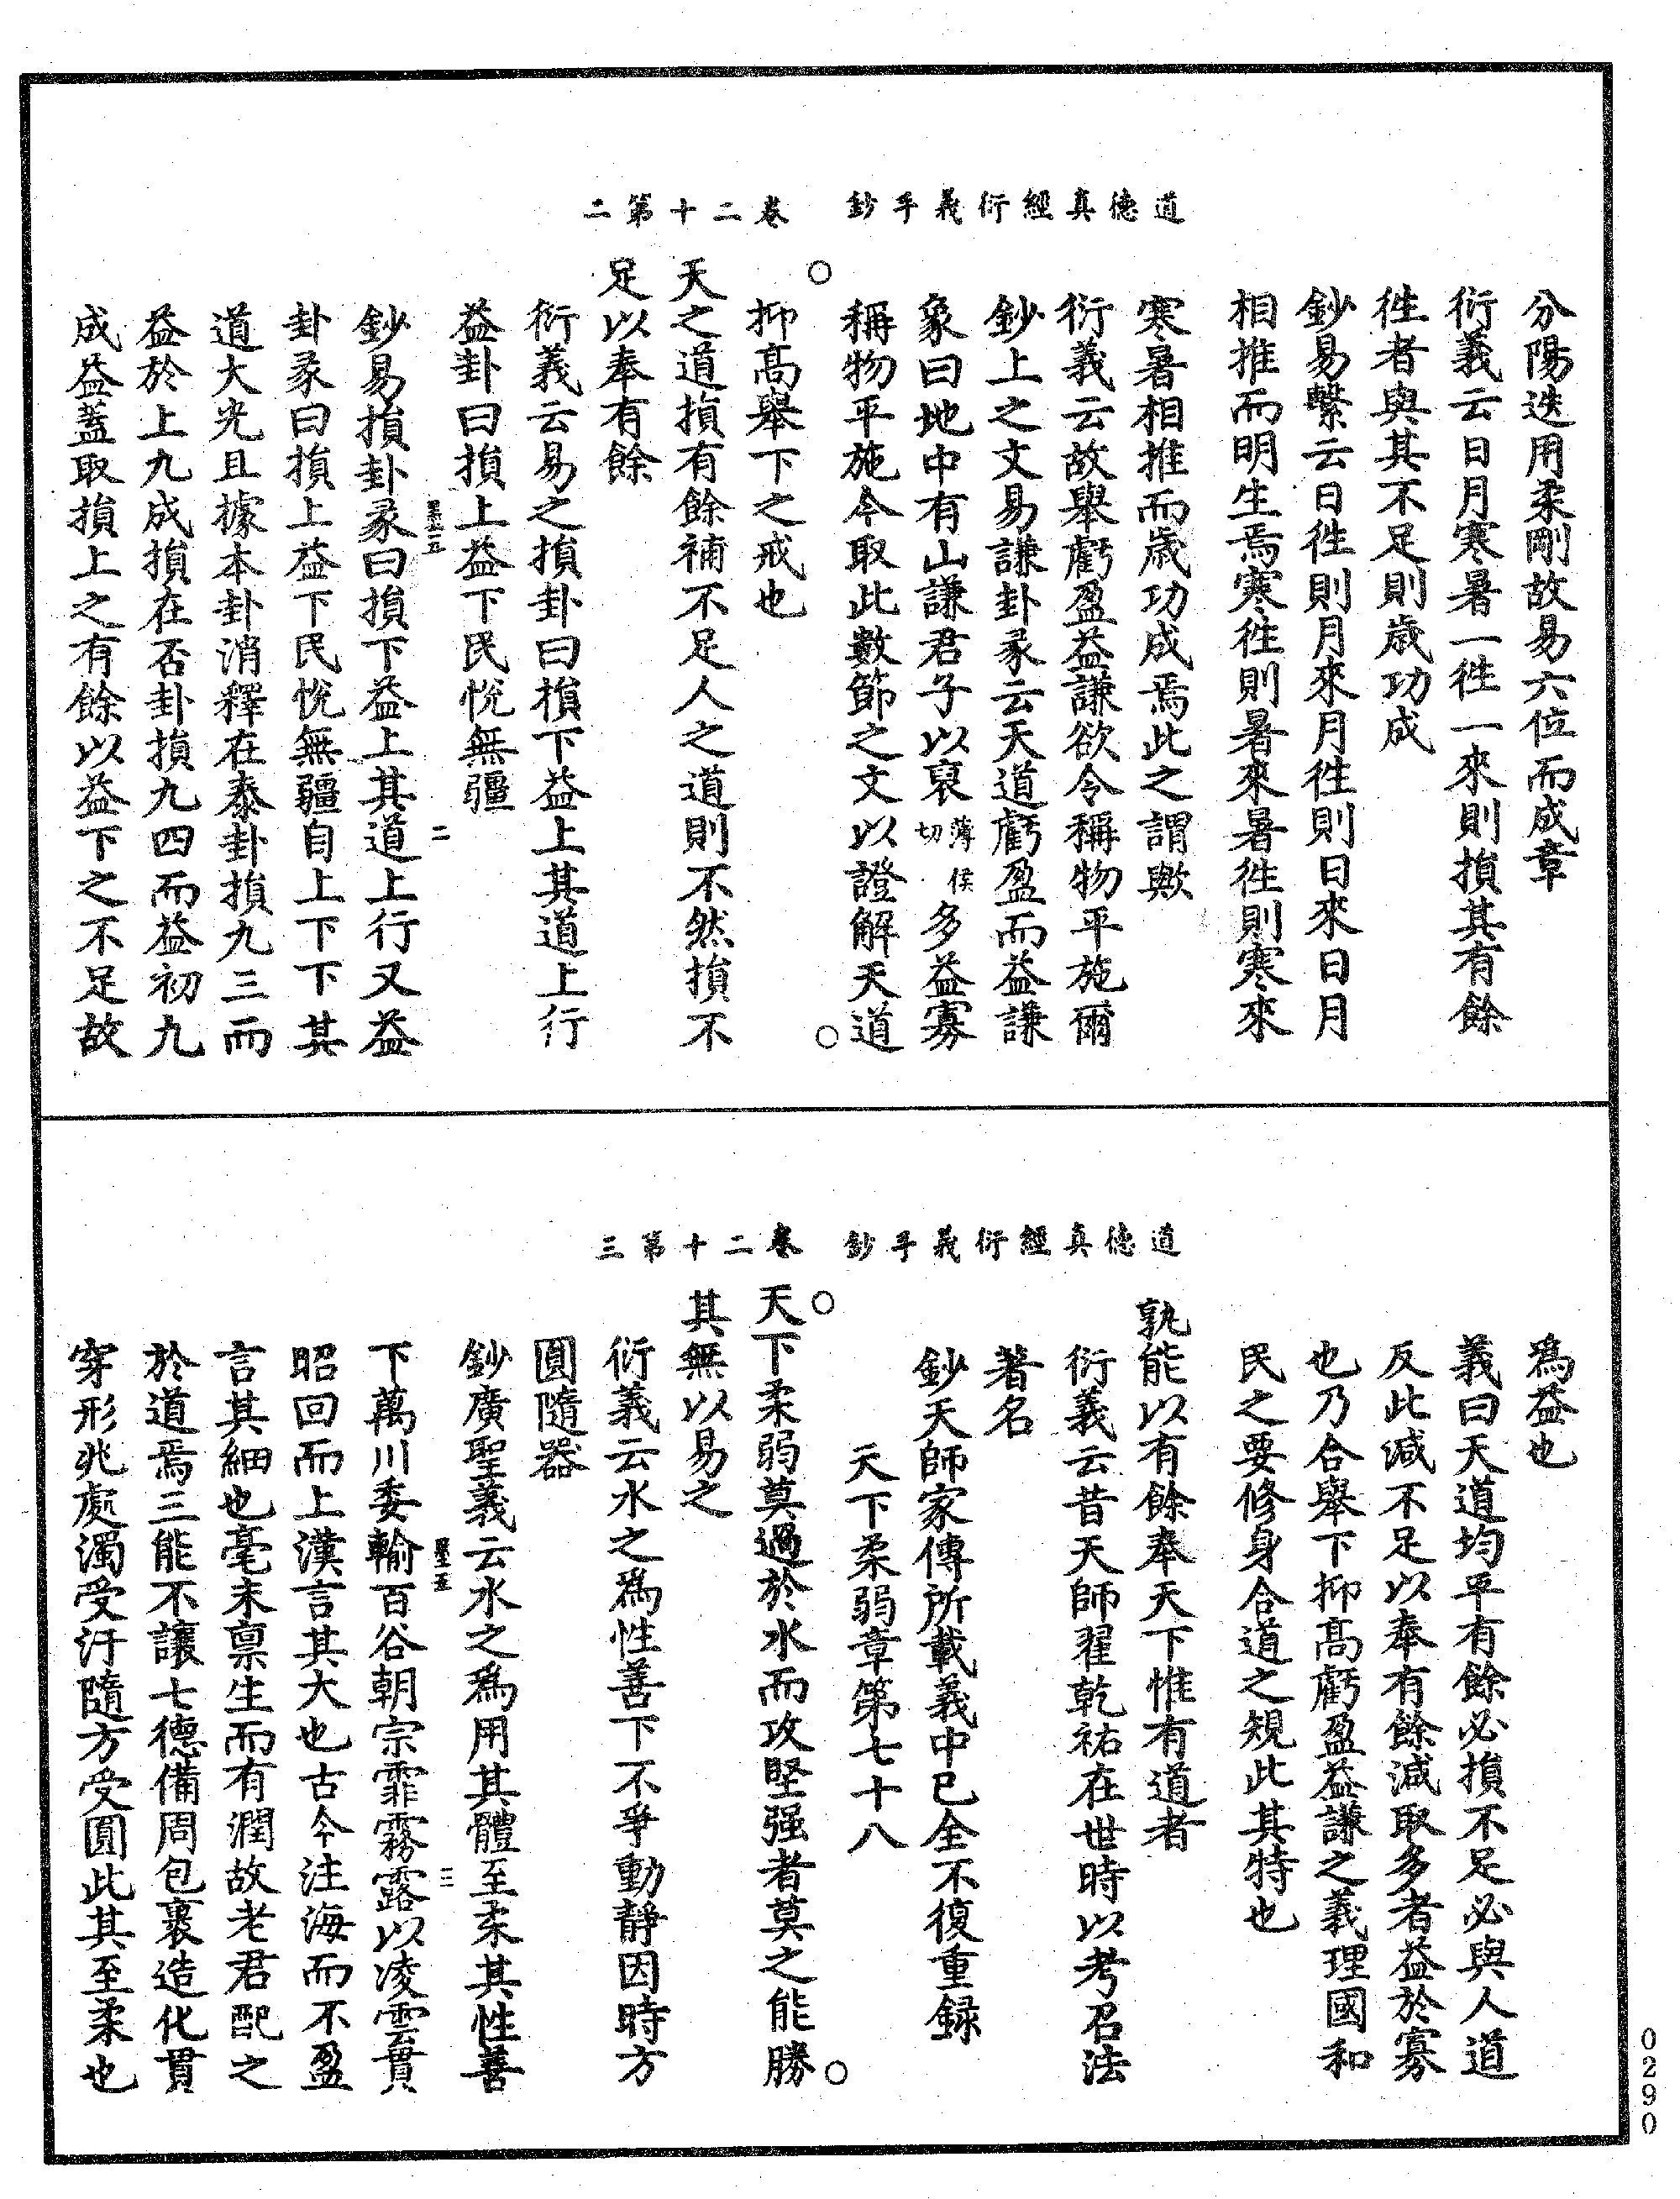 道德真經衍義手鈔　卷二十第二
分陽迭用柔剛故易六位而成章
衍義云日月寒暑一徃一來則損其有餘
徃者與其不足則歲功成
鈔易繫云日徃則月來月徃則日來日月
相推而明生焉寒徃則暑來暑徃則寒來
寒暑相推而歲功成焉此之謂歟
衍義云故舉虧盈益謙欲令稱物平施爾
鈔上之文易謙卦彖云天道虧盈而益謙
象曰地中有山謙君子以裒薄侯切多益寡
稱物平施今取此數節之文以證解天道
○抑髙舉下之戒也○
天之道損有餘補不足人之道則不然損不
足以奉有餘
衍義云易之損卦曰損下益上其道上行
益卦曰損上益下民悅無疆
鈔易損卦彖曰損下益上其道上行又益
卦彖曰損上益下民悅無疆自上下下其
道大光且據本卦消釋在泰卦損九三而
益於上九成損在否卦損九四而益初九
成益蓋取損上之有餘以益下之不足故
二
道德真經衍義手鈔　卷二十第三
爲益也
義曰天道均平有餘必損不足必與人道
反此減不足以奉有餘減取多者益於寡
也乃合舉下抑髙虧盈益謙之義理國和
民之要修身合道之規此其特也
孰能以有餘奉天下惟有道者
衍義云昔天師翟乾祐在世時以考召法
著名
鈔天師家傳所載義中已全不復重録
天下柔弱章第七十八
○天下柔弱莫過於水而攻堅强者莫之能勝○
其無以易之
衍義云水之爲性善下不爭動靜因時方
圓隨器
鈔廣聖義云水之爲用其體至柔其性善
下萬川委輸百谷朝宗霏霧露以凌雲貫
昭回而上漢言其大也古今注海而不盈
言其細也毫末禀生而有潤故老君配之
於道焉三能不讓七德備周包裹造化貫
穿形兆處濁受汙隨方受圓此其至柔也
三
0290